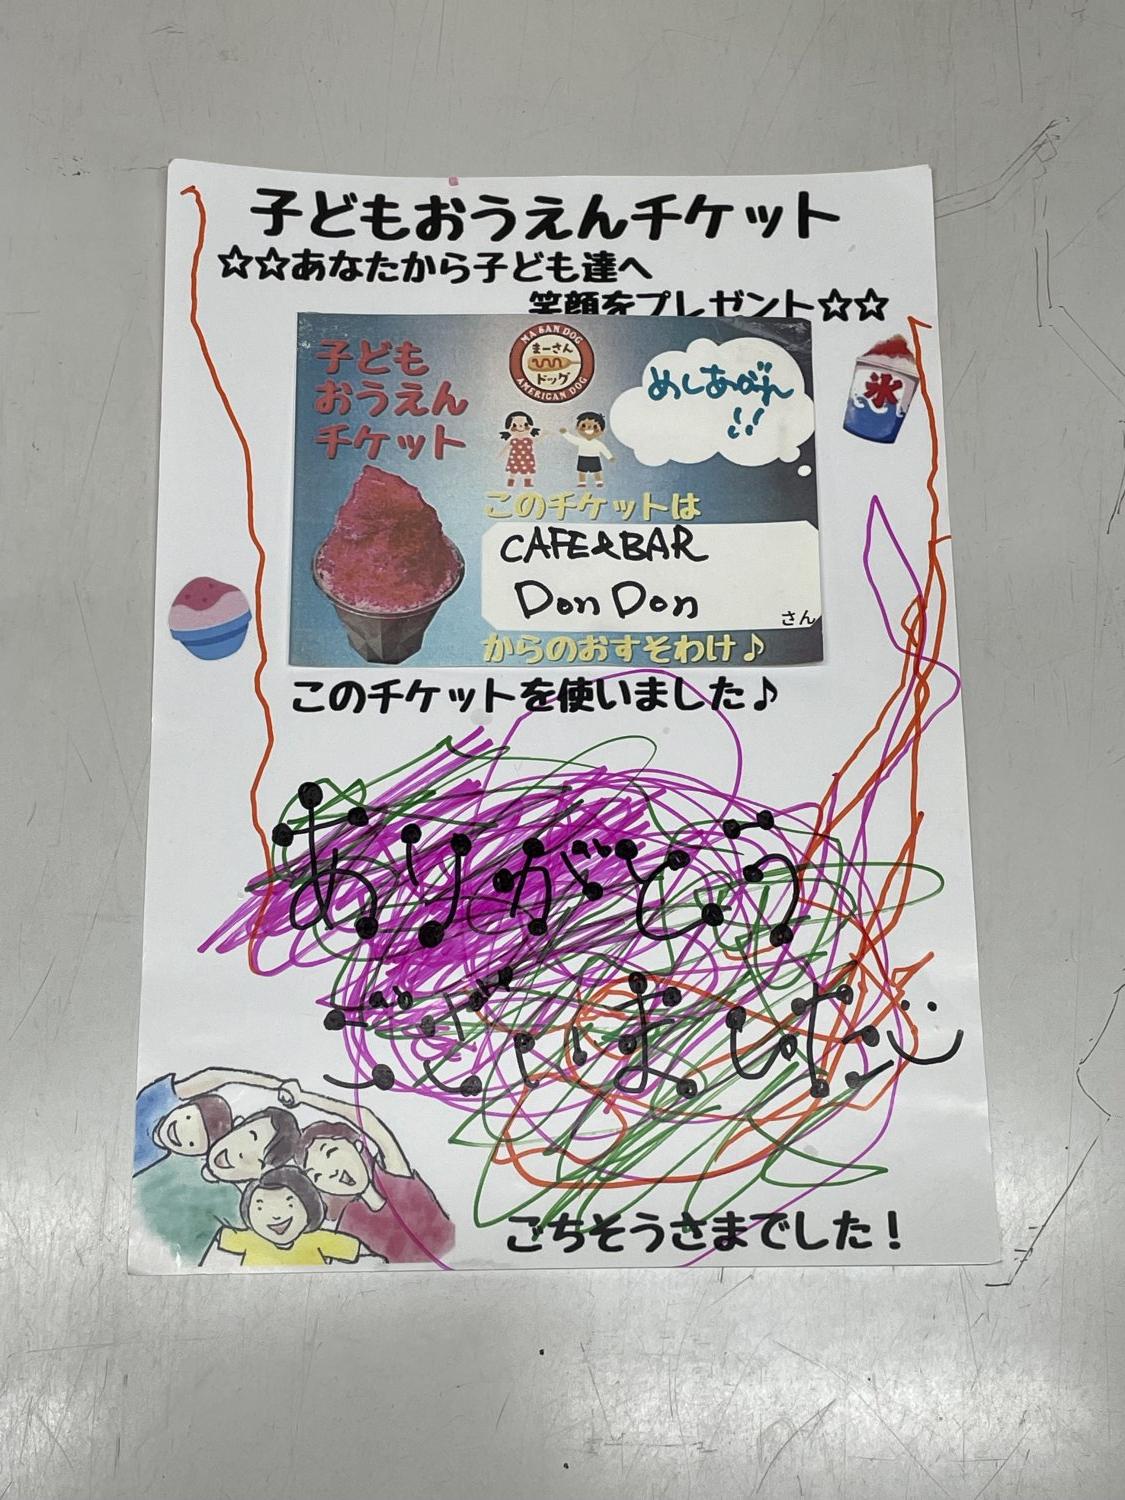 子どもおうえんチケット
☆☆あなたから子ども達へ
笑顔をプレゼント☆☆
子ども
おうえん
チケット
MA SAN DOG
まーさん
ドッグ
AMERICAN DOG
めしあがれ
!!
氷
このチケットは
CAFE&BAR
Don Don
さん
からのおすそわけ♪
このチケットを使いました♪
ありがとう
ございました
ごちそうさまでした！